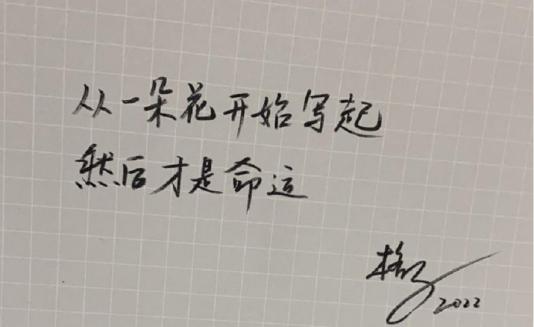 从一朵花开始写起
然后才是命运
格子
2022